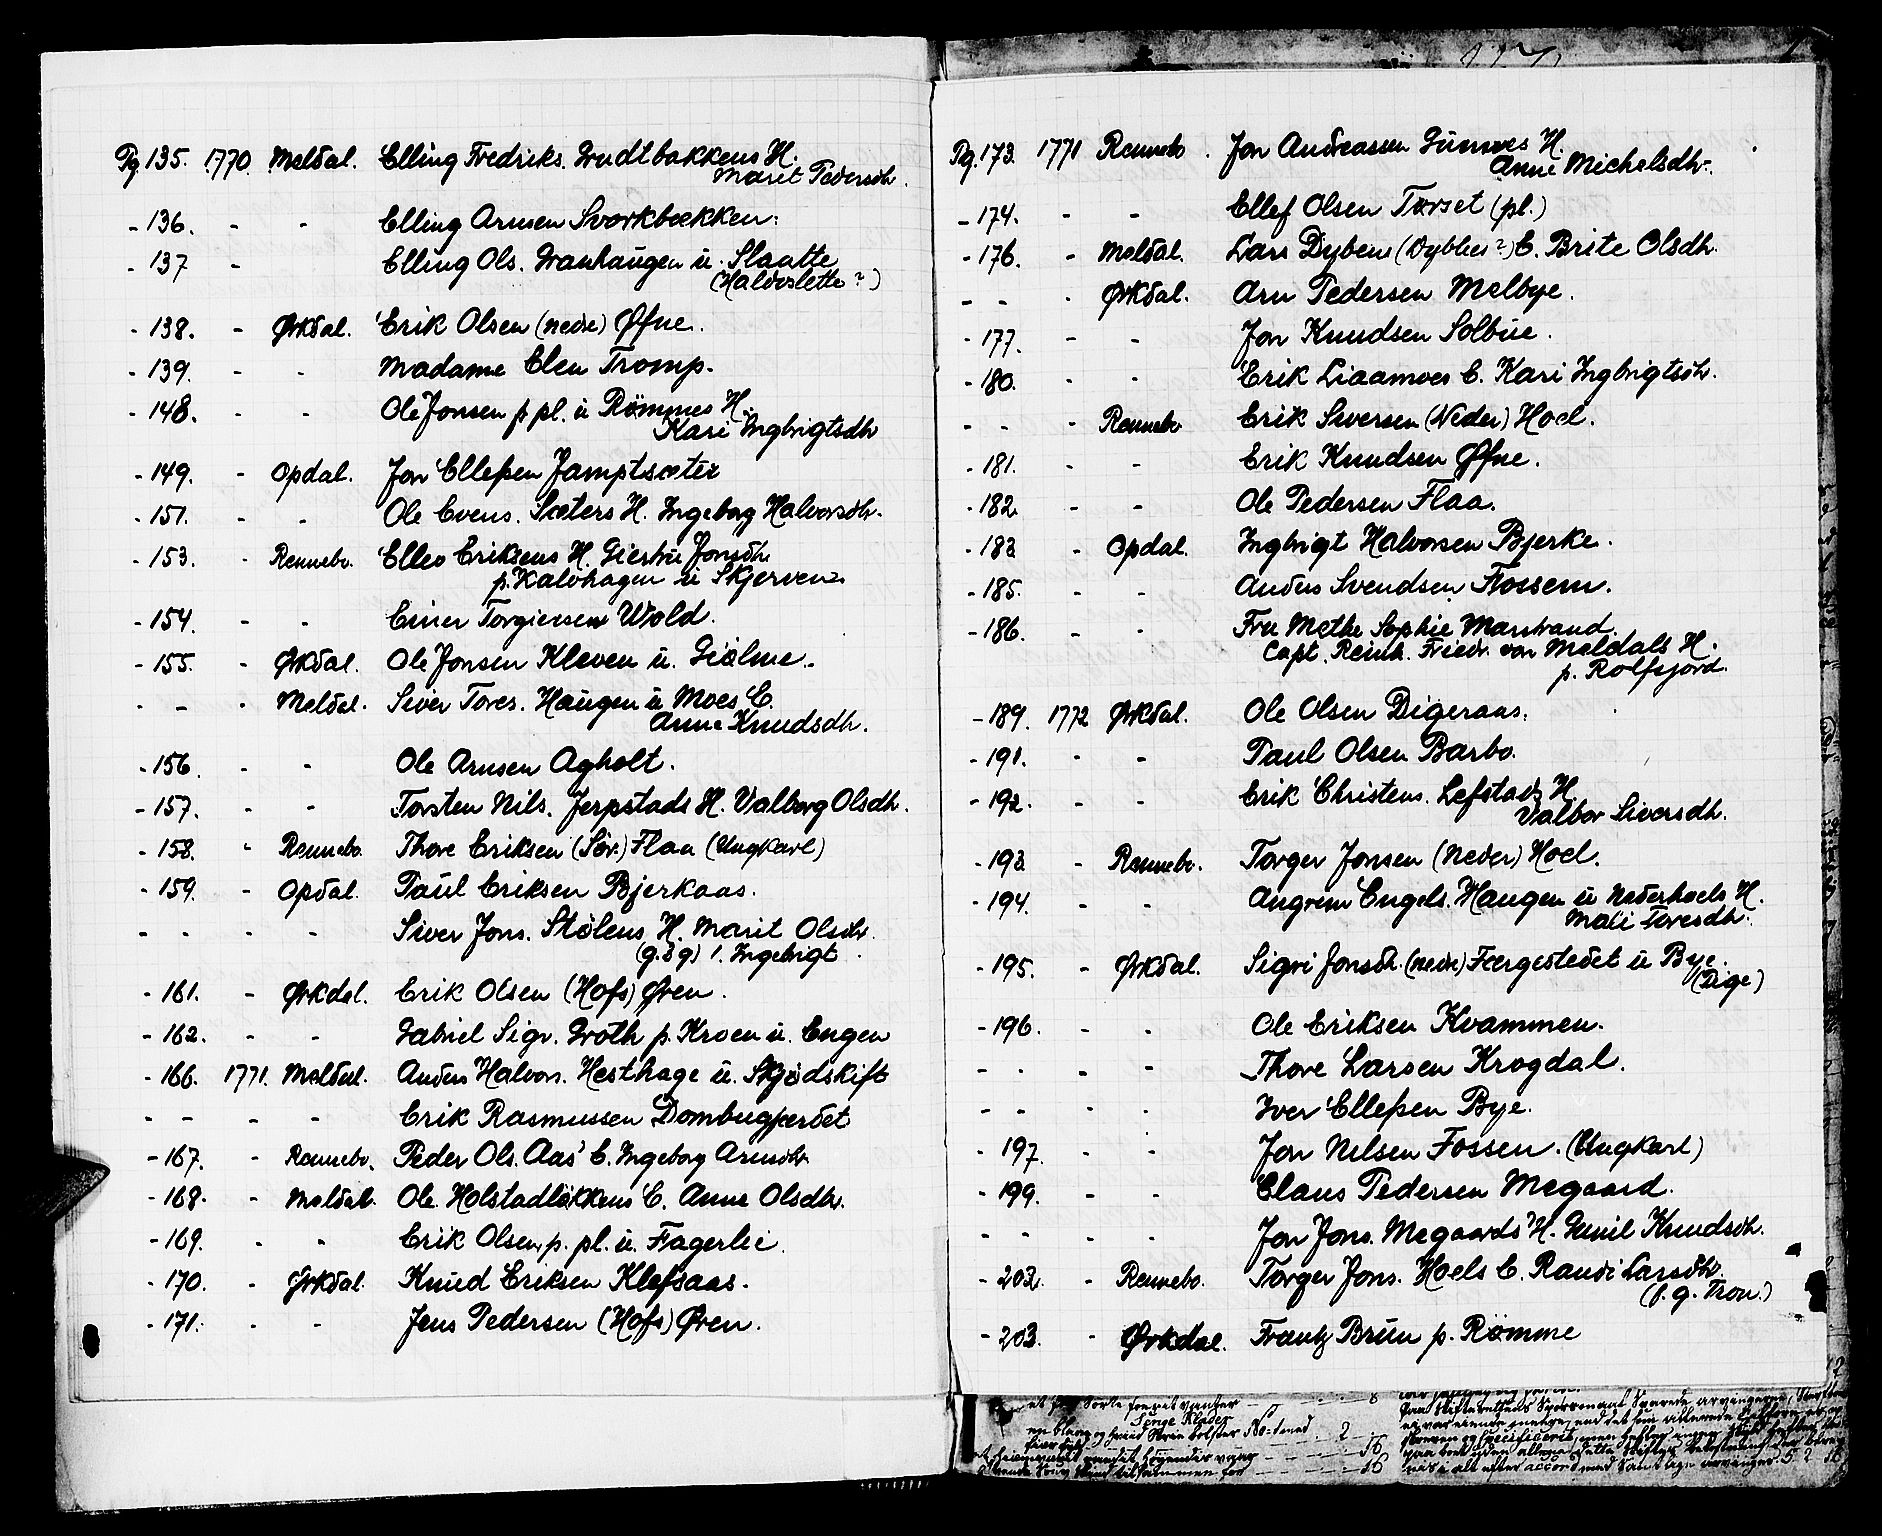 Pg. 135. 1770. Meldal. Elling Fredriks. Grudtbakkens H.
Marit Pedersdtr.
- 136. - - Elling Arnsen Svorkbækken.
- 137 - Elling Ols. Granhaugen u. Slaatte
(Halvorslette?)
- 138. - Ørkdal. Erik Olsen (nedre) Øfne.
- 139. - - Madame Elen Tromp.
- 148. - - Ole Jonsen p pl. u Römmes H.
Kari Ingbrigtsdtr
- 149. - Opdal. Jon Elleßen Jamptsæter
- 151. - - Ole Evens. Sæters H. Ingeborg Halvorsdtr.
- 153. - Rennebo. Ellev Eriksens H. Giertru Jonsdtr.
p. Kalvhagen u Skjerven
- 154. - - Einer Torgiersen Wold.
- 155. - Ørkdal. Ole Jonsen Kleven u. Giølme.
- - - Meldal. Siver Tores. Haugen u Moes E.
Anne Knudsdtr.
- 156. - - Ole Arnsen Agholt.
- 157. - - Torsten Nils. Jerpstads H. Valborg Olsdtr.
- 158. - Rennebo. Thore Eriksen (Sør) Flaa (Ungkarl)
- 159. - Opdal. Paul Eriksen Bjerkaas.
- - - - Siver Jons. Stølens H. Marit Olsdtr.
(g.dg) 1. Ingebrigt.
- 161. - Ørkdal. Erik Olsen (Hofs) Øren.
- 162. - - Gabriel Sigv. Groth p. Kroen u. Engen
- 166. 1771. Meldal. Anders Halvors. Hesthage u. Skjødskift
- - - - Erik Rasmussen Dombugjerdet
- 167. - Rennebo. Peder Ols. Aas' E. Ingeborg Arnsdtr.
- 168. - Meldal. Ole Holstadløkkens E. Anne Olsdtr.
- 169. - - Erik Olsen p. pl. u. Fagerlie.
- 170. - Ørkdal. Knud Eriksen Klefsaas.
- 171. - - Jens Pedersen (Hofs) Øren.
Pg. 173. 1771 Rennebo. Jon Andreassen Gunnes H.
Anne Michelsdtr.
- 174. - - Ellef Olsen Torset (pl.)
- 176. - Meldal. Lars Dybens (Dyblies?) E. Brite Olsdtr.
- - - Ørkdal. Arn Pedersen Melbye.
- 177. - - Jon Knudsen Solbue.
- 180. - - Erik Liaamoes E. Kari Ingbrigtsdtr.
- - - Rennebo Erik Siversen (Neder) Hoel.
- 181. - - Erik Knudsen Øfne.
- 182. - - Ole Pedersen Flaa.
- 183 - Opdal. Ingbrigt Halvorsen Bjerke.
- 185. - - Anders Svendsen Flossem.
- 186. - - Fru Mette Sophie Marstrand.
Capt. Reinh. Friedr. von Meldals H.
p. Rolfsjord.
- 189. 1772 Ørkdal. Ole Olsen Digeraas.
- 191. - - Paul Olsen Barbo.
- 192. - - Erik Christens. Lefstads H
Valbor Siversdtr.
- 193 - Rennebo. Torger Jonsen (Neder) Hoel.
- 194. - - Angrim Engels. Haugen u Nederhoels H.
Mali Toresdtr.
- 195. - Ørkdal. Sigri Jonsdtr. (nedre) Færgestedet u Bye.
(Dige)
- 196. - - Ole Eriksen Kvammen.
- - - - Thore Larsen Krogdal.
- - - - Iver Elleßen Bye.
- 197. - - Jon Nilsen Fossen. (Ungkarl)
- 199. - - Claus Pedersen Megaard.
- - - - Jon Jons. Megaards H. Gunil Knudsdtr.
- 202. - Rennebo. Torger Jons. Hoels E. Randi Larsdtr.
(f. g. Tron.)
- 203. - Ørkdal. Frantz Brun p. Römme